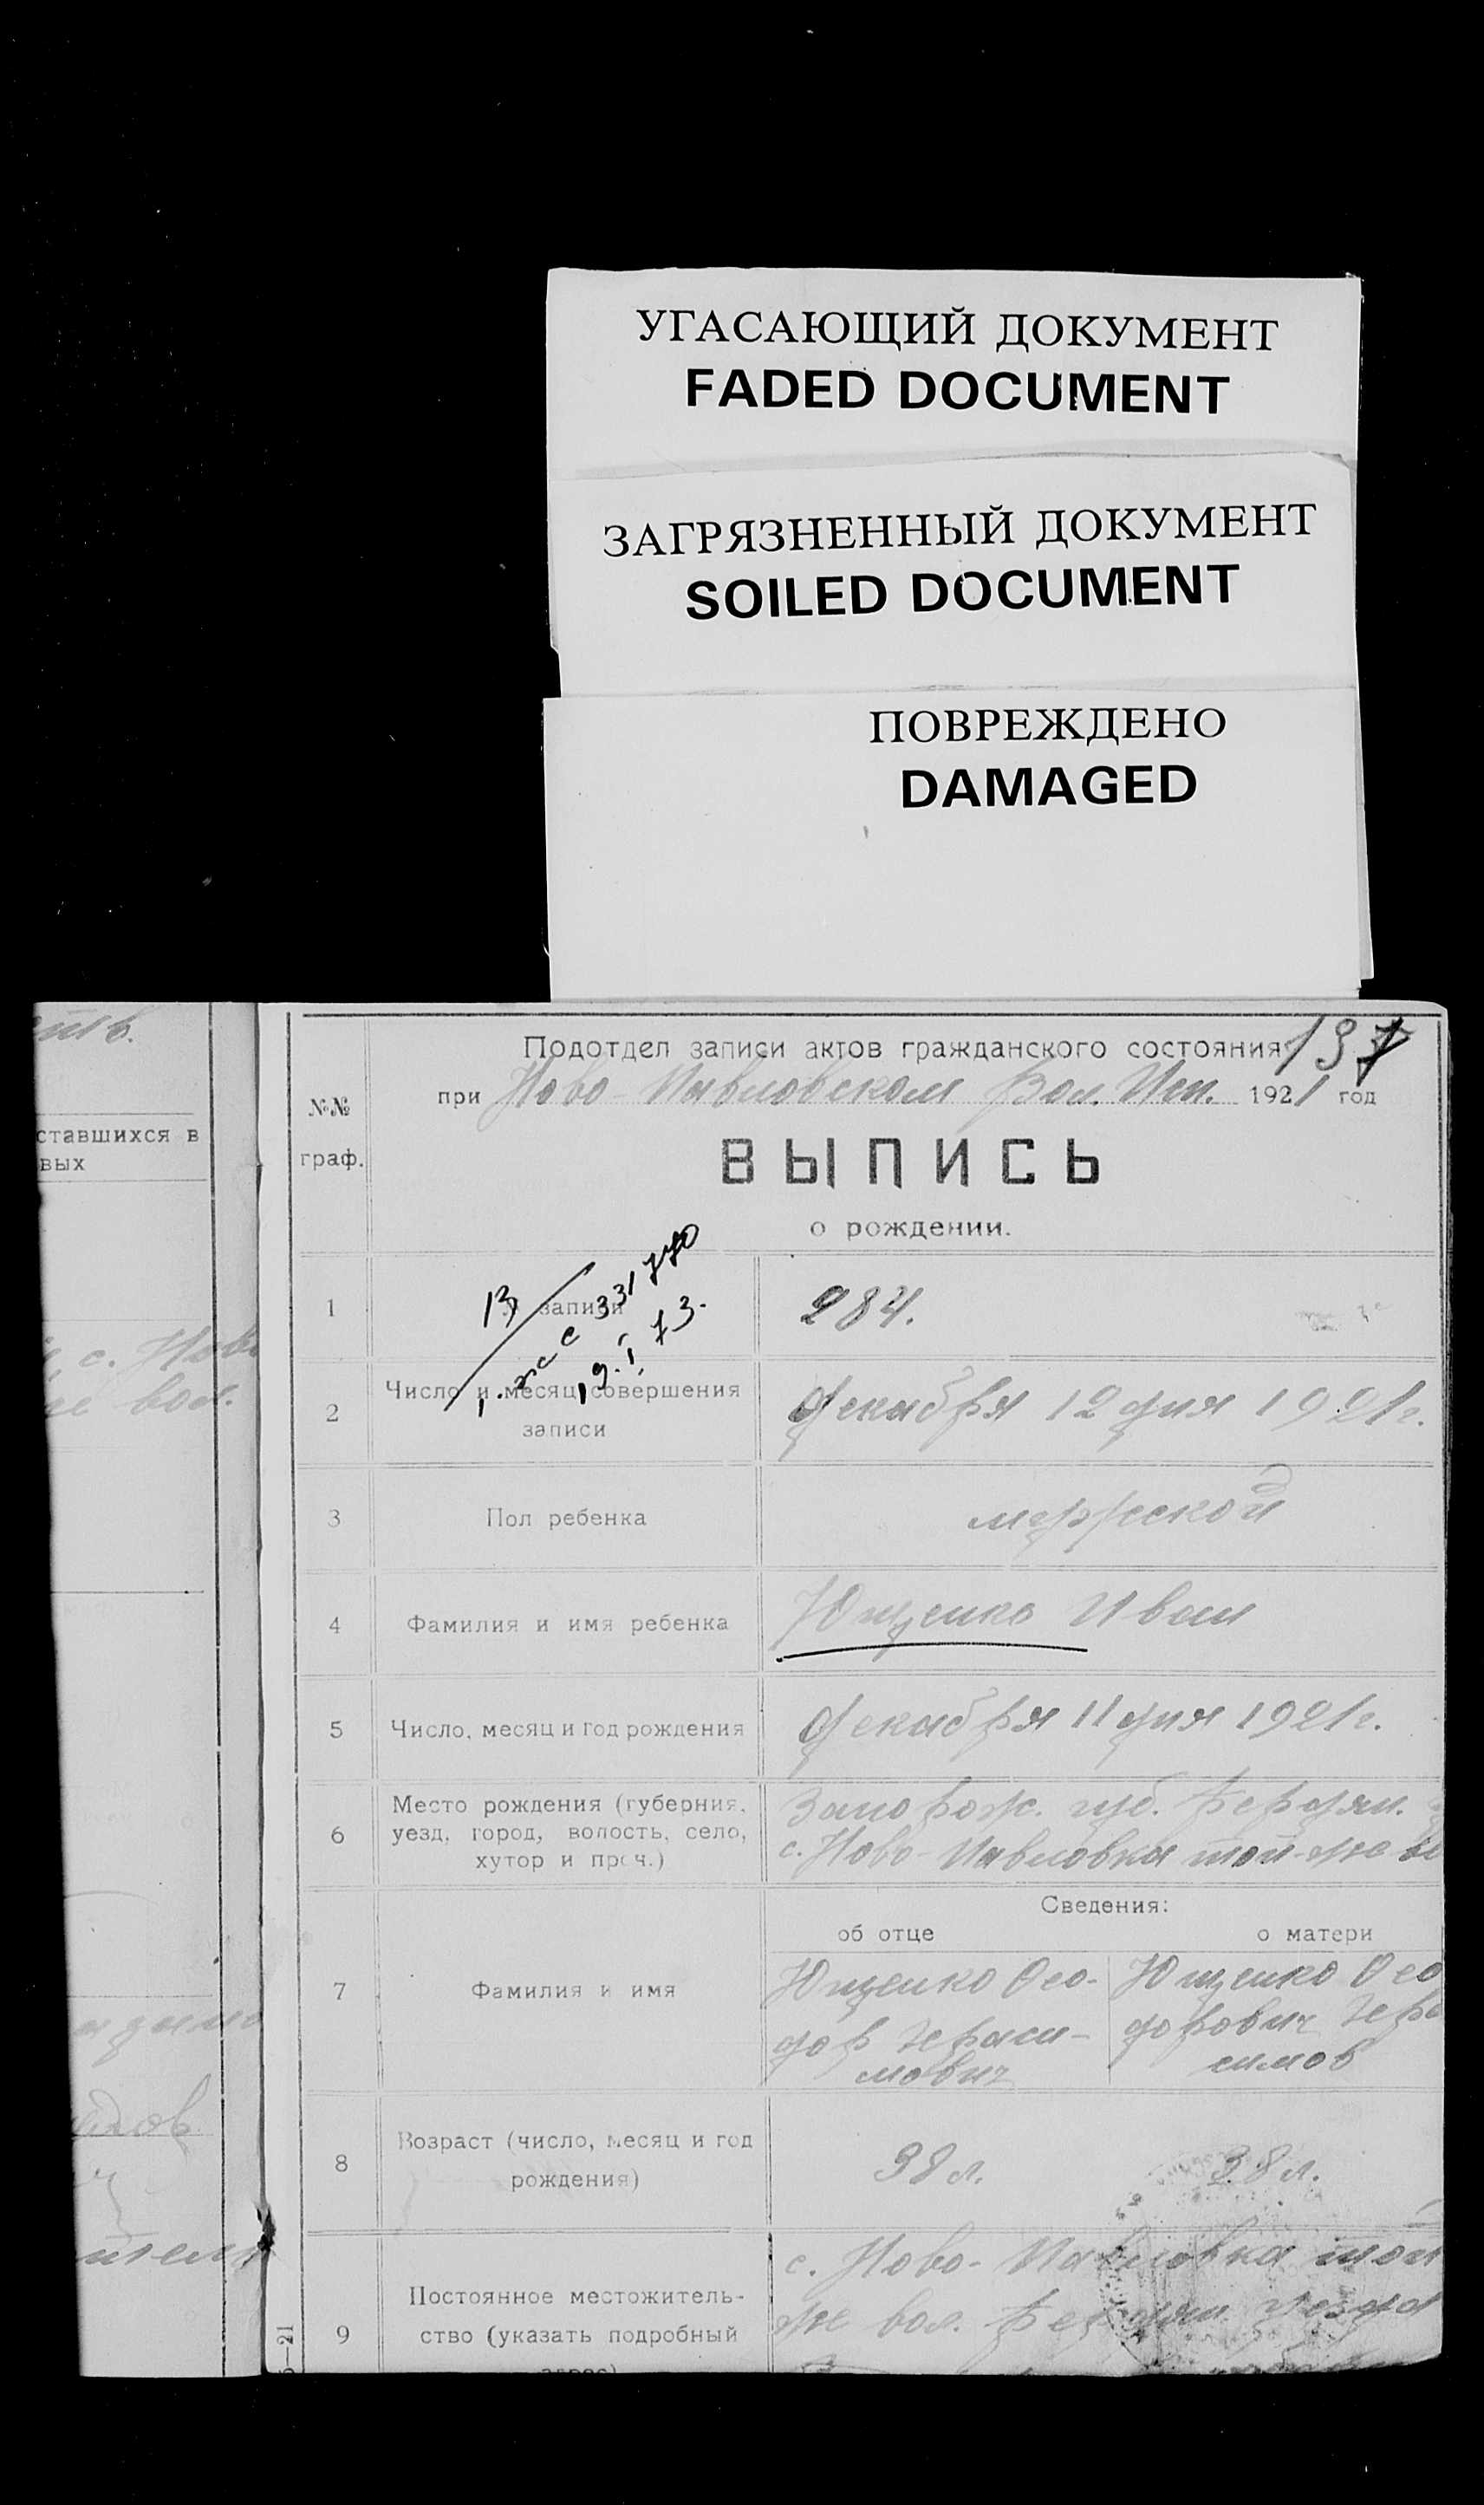 УГАСАЮЩИЙ ДОКУМЕНТ
FADED DOCUMENT
ЗАГРЯЗНЕННЫЙ ДОКУМЕНТ
SOILED DOCUMENT
ПОВРЕЖДЕНО
DAMAGED
ставшихся в
вых
с. Ново
вол.
197
Подотдел записи актов гражданского состояния
при Ново-Павловском Вол. Исп. 1921 год
№№
граф.
ВЫПИСЬ
о рождении.
1
записи
284.
13
331770
19.I.73.
2
Число и месяц совершения
записи
Декабря 12 дня 1921 г.
3
Пол ребенка
мужской
4
Фамилия и имя ребенка
Ющенко Иван
5
Число, месяц и год рождения
Декабря 11 дня 1921 г.
6
Место рождения (губерния,
уезд, город, волость, село,
хутор и проч.)
Запорож. губ. Бердян.
с. Ново-Павловка той-же
Сведения:
об отце
о матери
7
Фамилия и имя
Ющенко Фео-
дор Гераси-
мович
Ющенко Фео
дорович Гера
симов
8
Возраст (число, месяц и год
рождения)
38 л.
38 л.
9
Постоянное местожитель-
ство (указать подробный
адрес)
с. Ново-Павловка той
же вол. Бердян. уезда
5—21